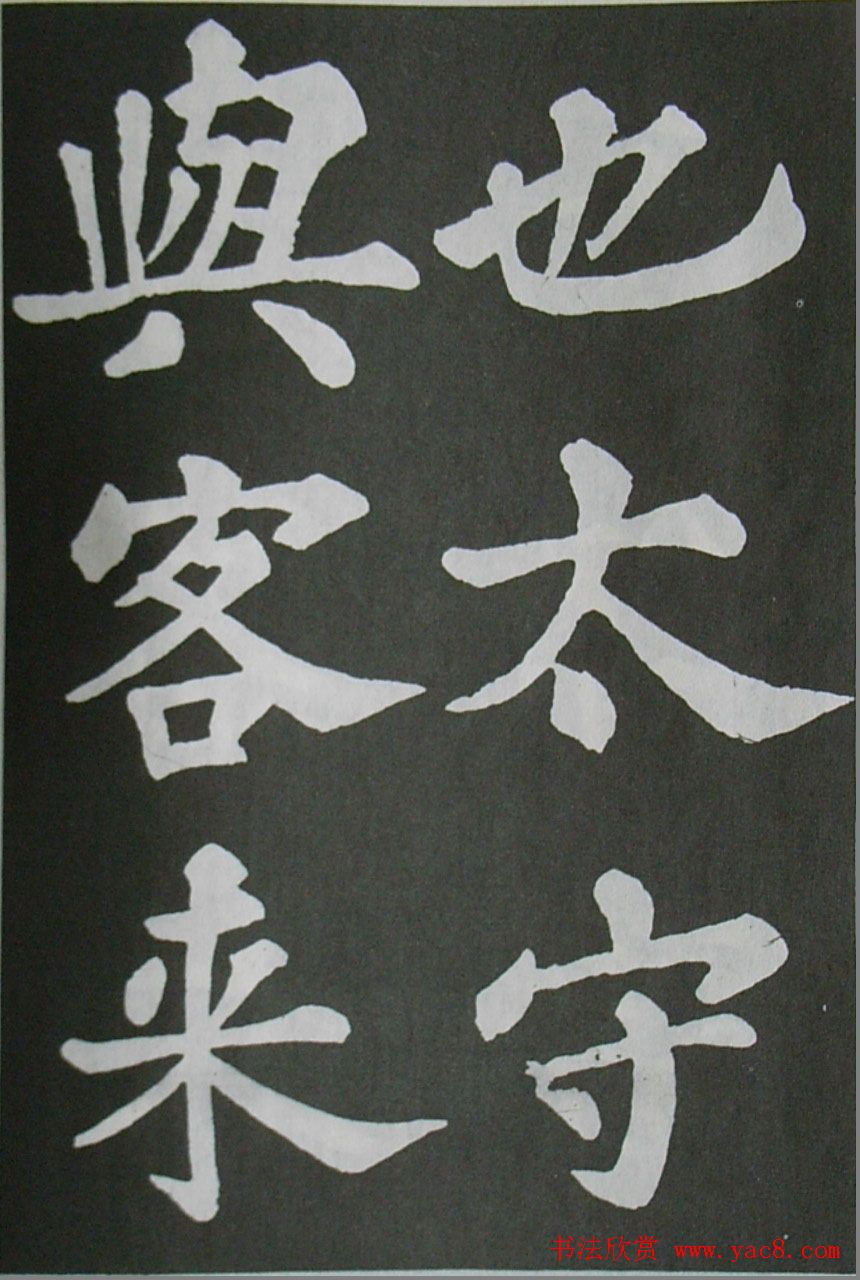 也太守
與客来
书法欣赏 www.yac8.com